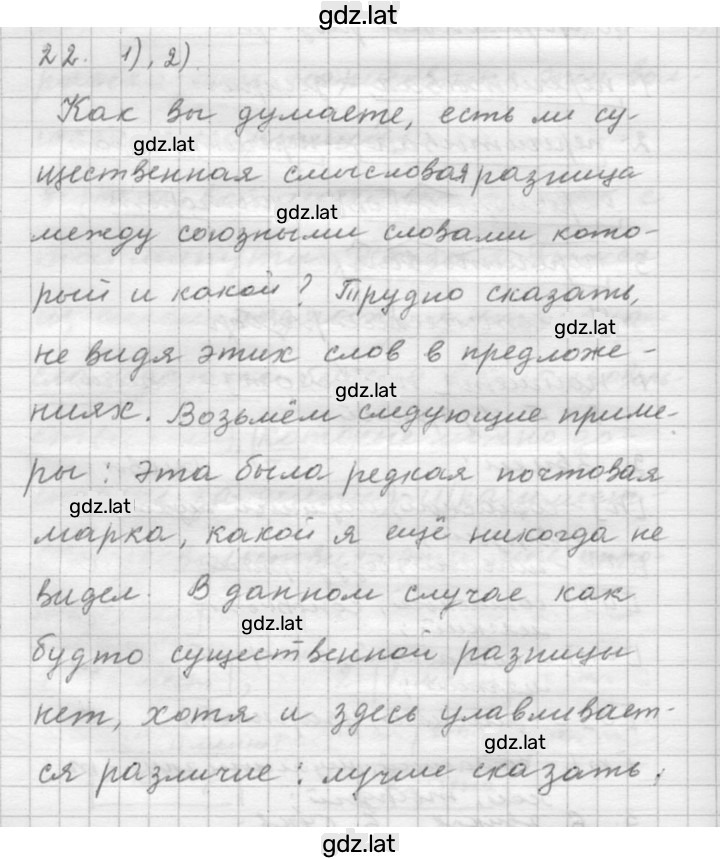 gdz.lat
22. 1), 2).
Как вы думаете, есть ли су-
gdz.lat
щественная смысловая разница
gdz.lat
между союзными словами кото-
рый и какой? Трудно сказать,
gdz.lat
не видя этих слов в предложе-
gdz.lat
ниях. Возьмём следующие приме-
ры: эта была редкая почтовая
gdz.lat
марка, какой я ещё никогда не
видел. В данном случае как
gdz.lat
будто существенной разницы
нет, хотя и здесь улавливает-
gdz.lat
ся различие: лучше сказать,
gdz.lat